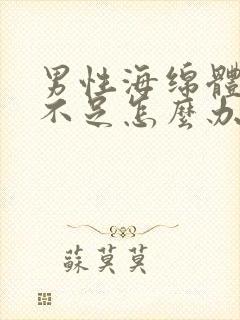 男性海绵體
不足怎麼办
蘇莫莫